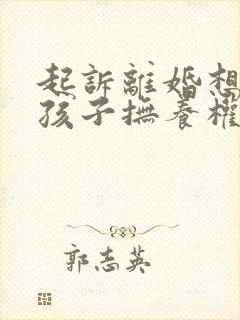 起訴離婚想
孩子撫養權
郭志英